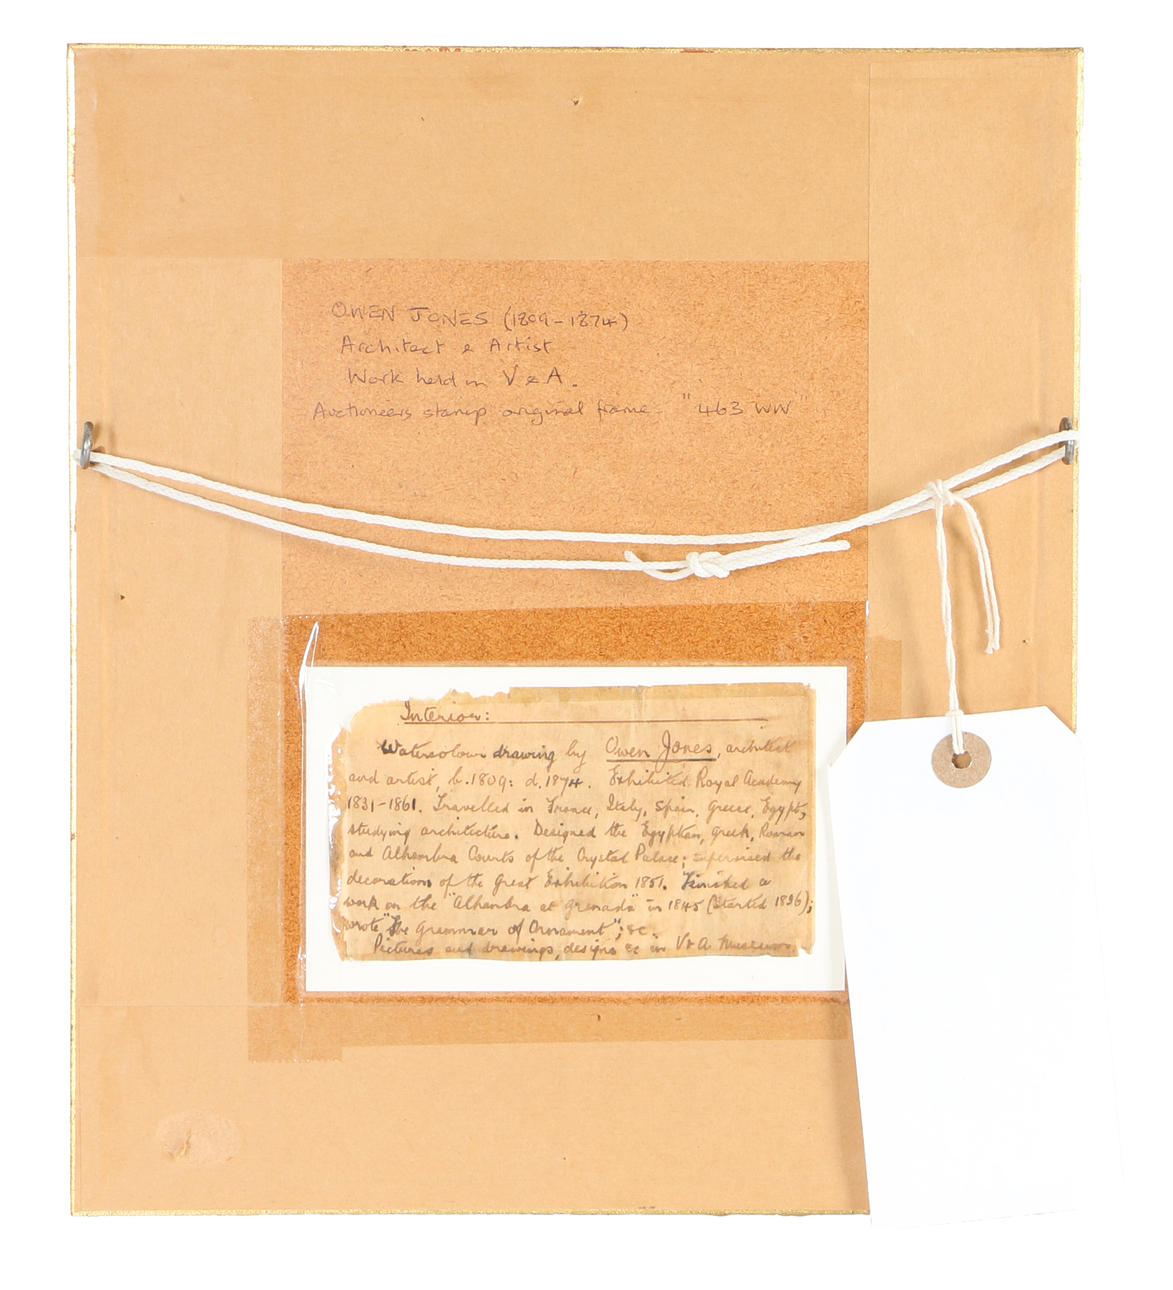 OWEN JONES (1809-1874)
Architect & Artist
Work held in V & A.
Auctioneers stamp original frame - "463 WW"
Interior:
Watercolour drawing by Owen Jones, architect
and artist, b.1809: d.1874. Exhibited Royal Academy
1831-1861. Travelled in France, Italy, Spain, Greece, Egypt,
studying architecture. Designed the Egyptian, Greek, Roman
and Alhambra Courts of the Crystal Palace; supervised the
decorations of the Great Exhibition 1851. Finished a
work on the "Alhambra at Grenada" in 1845 (started 1836);
wrote "The Grammar of Ornament"; &c.
Pictures and drawings, designs &c in V & A Museum